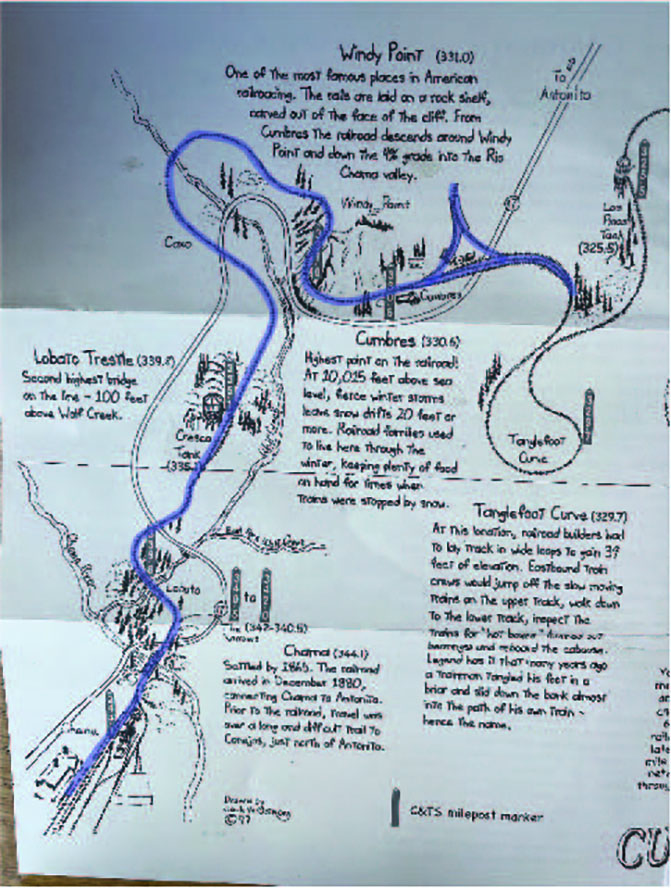 Windy Point (331.0)
One of the most famous places in American
railroading. The rails are laid on a rock shelf,
carved out of the face of the cliff. From
Cumbres the railroad descends around Windy
Point and down the 4% grade into the Rio
Chama valley.
To
Antonito
Windy Point
Los
Pinos
Tank
(325.5)
Coxo
Cumbres
Lobato Trestle
Second highest bridge
on the line - 100 feet
above Wolf Creek.
Cumbres (330.6)
Highest point on the railroad!
At 10,015 feet above sea
level, fierce winter storms
leave snow drifts 20 feet or
more. Railroad families used
to live here through the
winter, keeping plenty of food
on hand for times when
trains were stopped by snow.
Cresco
Tank
Tanglefoot
Curve
Tanglefoot Curve (329.7)
At this location, railroad builders had
to lay track in wide loops to gain 39
feet of elevation. Eastbound train
crews would jump off the slow moving
trains on the upper track, walk down
to the lower track, inspect the
trains for "hot boxes"
bearings and reboard the caboose.
Legend has it that many years ago
a trainman tangled his feet in a
briar and slid down the bank almost
into the path of his own train -
hence the name.
Lobato
to
(342-340.5)
Chama (344.1)
Settled by 1865. The railroad
arrived in December 1880,
connecting Chama to Antonito.
Prior to the railroad, travel was
over a long and difficult trail to
Conejos, just north of Antonito.
Chama
Drawn by
C&TS milepost marker
CU